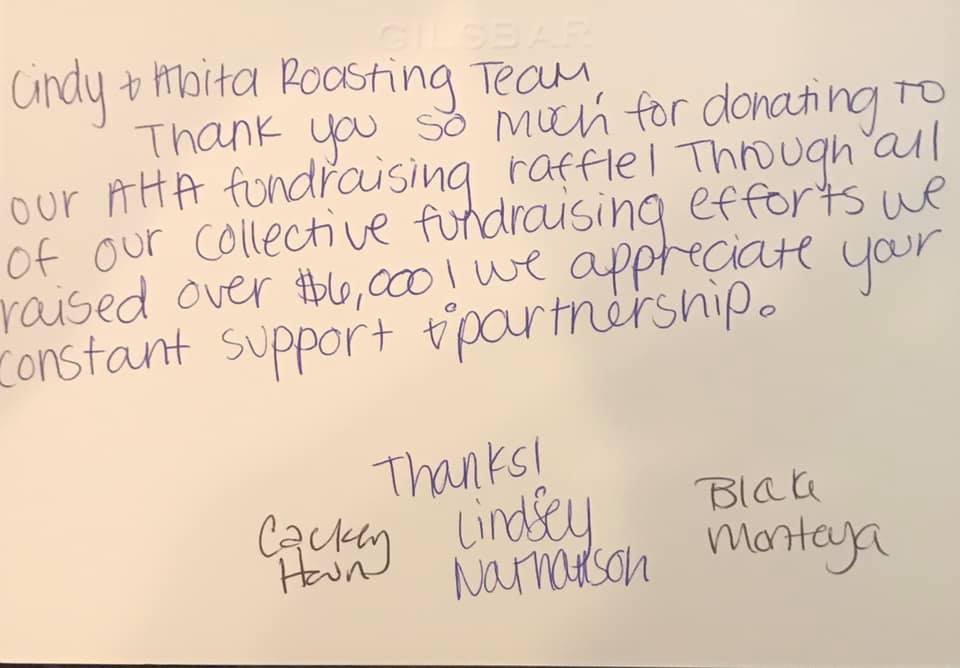 GILSBAR
Cindy & Abita Roasting Team,
Thank you so much for donating to
our AHA fundraising raffle! Through all
of our collective fundraising efforts we
raised over $6,000! We appreciate your
constant support & partnership.
Thanks!
Lindsey
Blake
Monteya